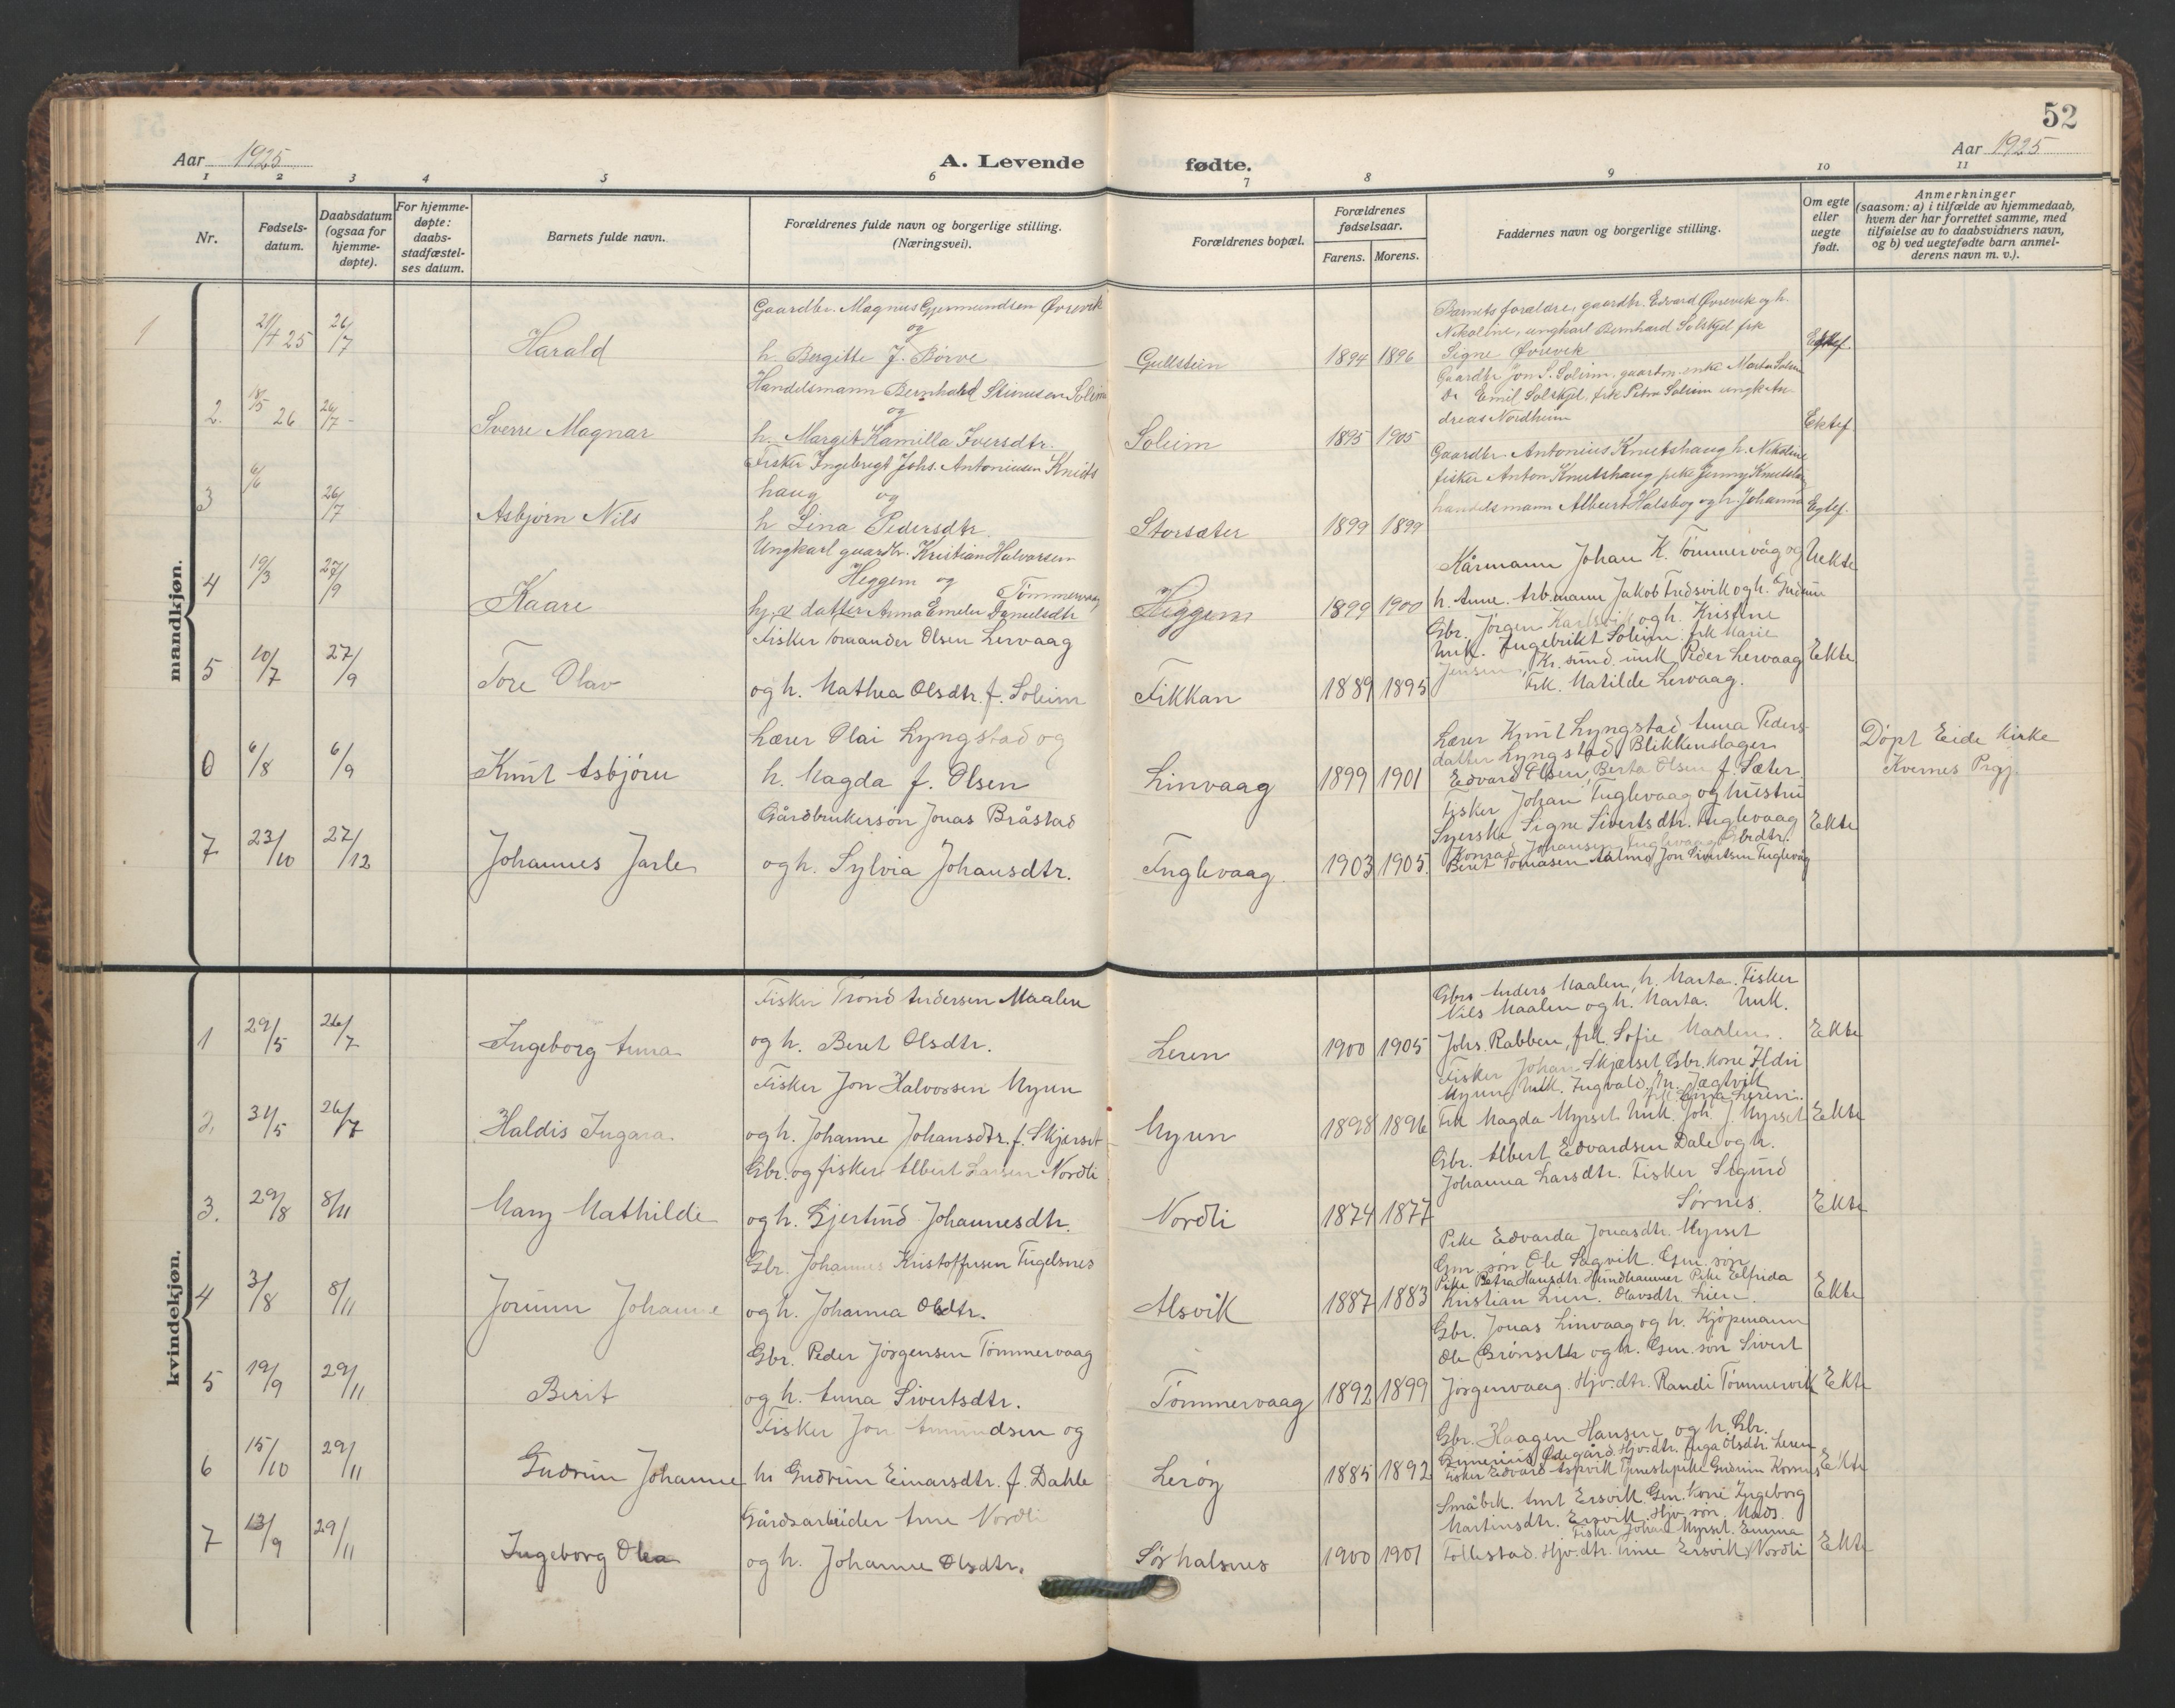 52
Aar 1925
A. Levende fødte.
Aar 1925
1 2 3 4 5 6 7 8 9 10 11
Nr.
Fødsels-
datum.
Daabsdatum
(ogsaa for
hjemme-
døpte).
For hjemme-
døpte:
daabs-
stadfæstel-
ses datum.
Barnets fulde navn.
Forældrenes fulde navn og borgerlige stilling.
(Næringsvei).
Forældrenes bopæl.
Forældrenes
fødselsaar.
Farens. Morens.
Faddernes navn og borgerlige stilling.
Om egte
eller
uegte
født.
Anmerkninger
(saasom: a) i tilfælde av hjemmedaab,
hvem der har forrettet samme, med
tilføielse av to daabsvidners navn,
og b) ved uegtefødte barn anmel-
derens navn m. v.).
mandkjøn.
1
29/4 25
26/7
Harald
Gaardbr. Magnus Gjermundsen Øvrevik
og
h. Bergitte J. Børve
Gullstein
1894 1896
Barnets forældre, gaardbr. Edvard Øvrevik og h.
Nikoline, ungkarl Bernhard Solskjel frk
Signe Øvrevik
Egtef.
2.
18/5 26
26/7
Sverre Magnar
Handelsmann Bernhard Steinesen Soleim
og
h. Margit Kamilla Iversdtr.
Soleim
1895 1905
Gaardbr Jon S. Soleim, gaardm. enke Marta Soleim
Emil Solskjel, frk Petra Soleim ungk An-
dreas Nordheim
Ektef
3
6/6
26/7
Asbjørn Nils
Fisker Ingebregt Johs. Antoniusen Knuts
haug og
h Lina Pedersdtr.
Storsæter
1899 1899
Gaardbr Antonius Knutshaug h. Nikoline
fisker Anton Knutshaug pike Jenny Knutshaug
handelsmann Albert Halsbog og h. Johanna
Egtef.
4
19/3
27/9
Kaare
Ungkarl gaardbr. Kristian Halvorsen
Heggem og Tømmervaag
hj. datter Anna Emelie Danielsdtr
Heggem
1899 1900
Kårmann Johan K. Tømmervåg og
h. Anne. Arb.mann Jakob Fredsvik og h. Gudrun
Gbr. Jørgen Karlsvik og h. Kristine
Uekte
5
10/7
27/9
Tore Olav
Fisker Olsen Lervaag
og h. Mathea Olsdtr. f. Soleim
Fikkan
1889 1895
Unk. Ingebrikt Soleim. frk Marie
Jensen, Kr.sund. unk Peder Lervaag
Frk. Matilde Lervaag.
Ekte
6/8
6/9
Knut Asbjørn
Lærer Olai Lyngstad og
h. Magda f. Olsen
Linvaag
1899 1901
Lærer Knut Lyngstad Anna Peders-
datter Lyngstad Blikkenslager
Edvard Olsen, Berta Olsen f. Sæter
Døpt Eide Kirke
Kvernes Prgj.
7
23/10
27/12
Johannes Jarle
Gårdbrukersøn Jonas Bråstad
og h. Sylvia Johansdtr.
Fuglevaag.
1903 1905.
Fisker Johan Fuglevaag og hustru
Syerske Signe Sivertsdtr. Fuglevaag
Konrad Johansen Fuglevaag
Beret Tomasen Aalmo, Jon Sivertsen Fuglevåg
Ekte
kvindekjøn.
1
29/5
26/7
Ingeborg Anna
Fisker Trond Andersen Maalen
og h. Beret Olsdtr.
Leren
1900 1905
Gbr. Anders Maalen, h. Marta. Fisker
Nils Maalen og h. Marta. Unk.
Johs. Rabben, frk. Sofie Maalen.
Ekte
2.
31/5
26/7
Haldis Ingara
Fisker Jon Halvorsen Myren
og h. Johanne Johansdtr. f. Skjerset
Myren
1898 1896
Fisker Johan Skjærset Gbr. kone Ildri
Myren Unk. Ingvald. Jægtvik
frk. Anna Leren.
Frk Magda Myrset. Unk. Joh. J. Myrset
Ekte
3.
29/8
8/11
Mary Mathilde
Gbr. og fisker Albert Larsen Nordli
og h. Gjertrud Johannesdtr.
Nordli
1874 1877
Gbr. Albert Edvardsen Dale og h.
Johanna Larsdtr. Fisker Sigurd
Sørnes.
Ekte
4
3/8
8/11
Jorunn Johanne
Gbr. Johannes Kristoffersen Fugelsnes
og h. Johanna Olsdtr.
Alsvik
1887 1883
Pike Edvarda Jonasdtr. Myrset
Gm. søn Ole Sagvik. Gm. søn
Pike Petra Hansdtr. Hundhammer Pike Elfrida
Kristian Lien. Olavsdtr. Lien.
Ekte
5
19/9
29/11
Berit
Gbr. Peder Jørgensen Tømmervaag
og h. Anna Sivertsdtr.
Tømmervaag
1892 1899
Gbr. Jonas Linvaag og h. Kjøpmann
Ole Grønseth og h. Gm. søn Sivert
Jørgenvaag. Hjv. dtr. Randi Tømmervik
Ekte
6
15/10
29/11
Gudrun Johanne
Fisker Jon Amundsen og
h. Gudrun Einarsdtr. f. Dahle
Lerøy
1885 1892
Gbr. Haagen Hansen og h. Gbr.
Gunerius Ødegård. Hjv. dtr. Inga Olsdtr. Leren
Fisker Edvard Aspvik Tjenestepike Gudrun Korsnes
Ekte
7
13/9
29/11
Ingeborg Olea
Gårdsarbeider Arne Nordli
og h. Johanne Olsdtr.
Sørhalsnes
1900 1901
Småbrk. Amt Ersvik. Gm. kone Ingeborg
Martinsdtr. Ersvik. Hjv. søn. Mads
Fisker Johan Myrset. Emma
Follestad. Hjv. dtr. Trine Ersvik, Nordli
Ekte